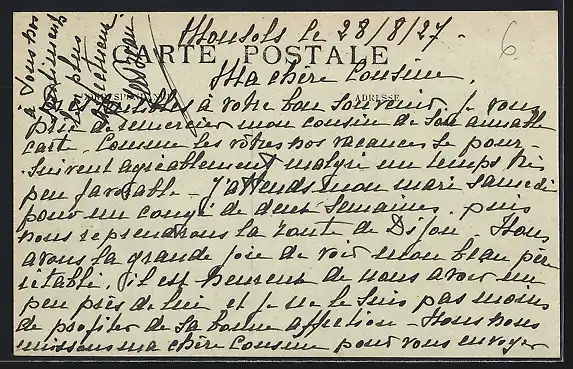 Monsols le 28/8/27.
6.
CARTE POSTALE
Ma chère Cousine,
CORRESPONDANCE ADRESSE
Très sensibles à votre bon souvenir, je vous
prie de remercier mon cousin de son aimable
carte. Comme les vôtres nos vacances se pour-
-suivent agréablement malgré un temps très
peu favorable - J'attends mon mari samedi
pour un congé de deux semaines, puis
nous reprendrons la route de Dijon - Nous
avons la grande joie de voir mon beau père
rétabli, il est heureux de nous avoir un
peu près de lui et je ne le suis pas moins
de profiter de sa bonne affection - Nous nous
unissons ma chère Cousine pour vous envoyer
à tous nos
sentiments
les plus
affectueux